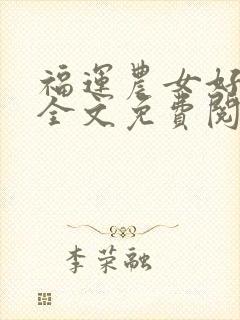 福運農女好
全文免費閱
李荣融